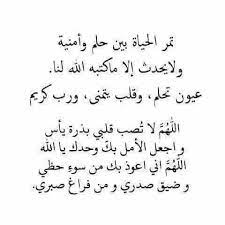 تمر الحياة بين حلم وأمنية
ولايحدث إلا ماكتبه الله لنا.
عيون تحلم، وقلب يتمنى، ورب كريم
اللَّهُمَّ لا تُصب قلبي بذرة يأس
و اجعل الأمل بكَ وحدك يا الله
اللَّهُمَّ اني اعوذ بك من سوءِ حظي
و ضيق صدري و من فراغ صبري.